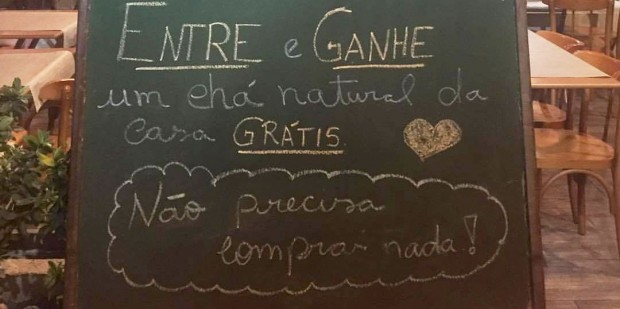 ENTRE e GANHE
um chá natural da
casa GRÁTIS.
Não precisa
comprar nada!